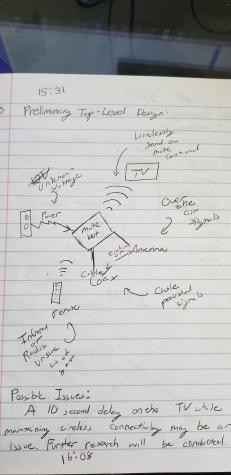 15:31
Preliminary Top-Level Design:
Wirelessly
Send a
mute
command
TV
unknown
voltage
Power
mute
box
Over
the
air
signals
Antenna
Coax
Cable
provided
signals
remote
Infrared
or
Radio
unsure
Possible Issues:
A 10 second delay on the TV while
maintaining wireless connectivity may be an
issue. Further research will be conducted.
16:08